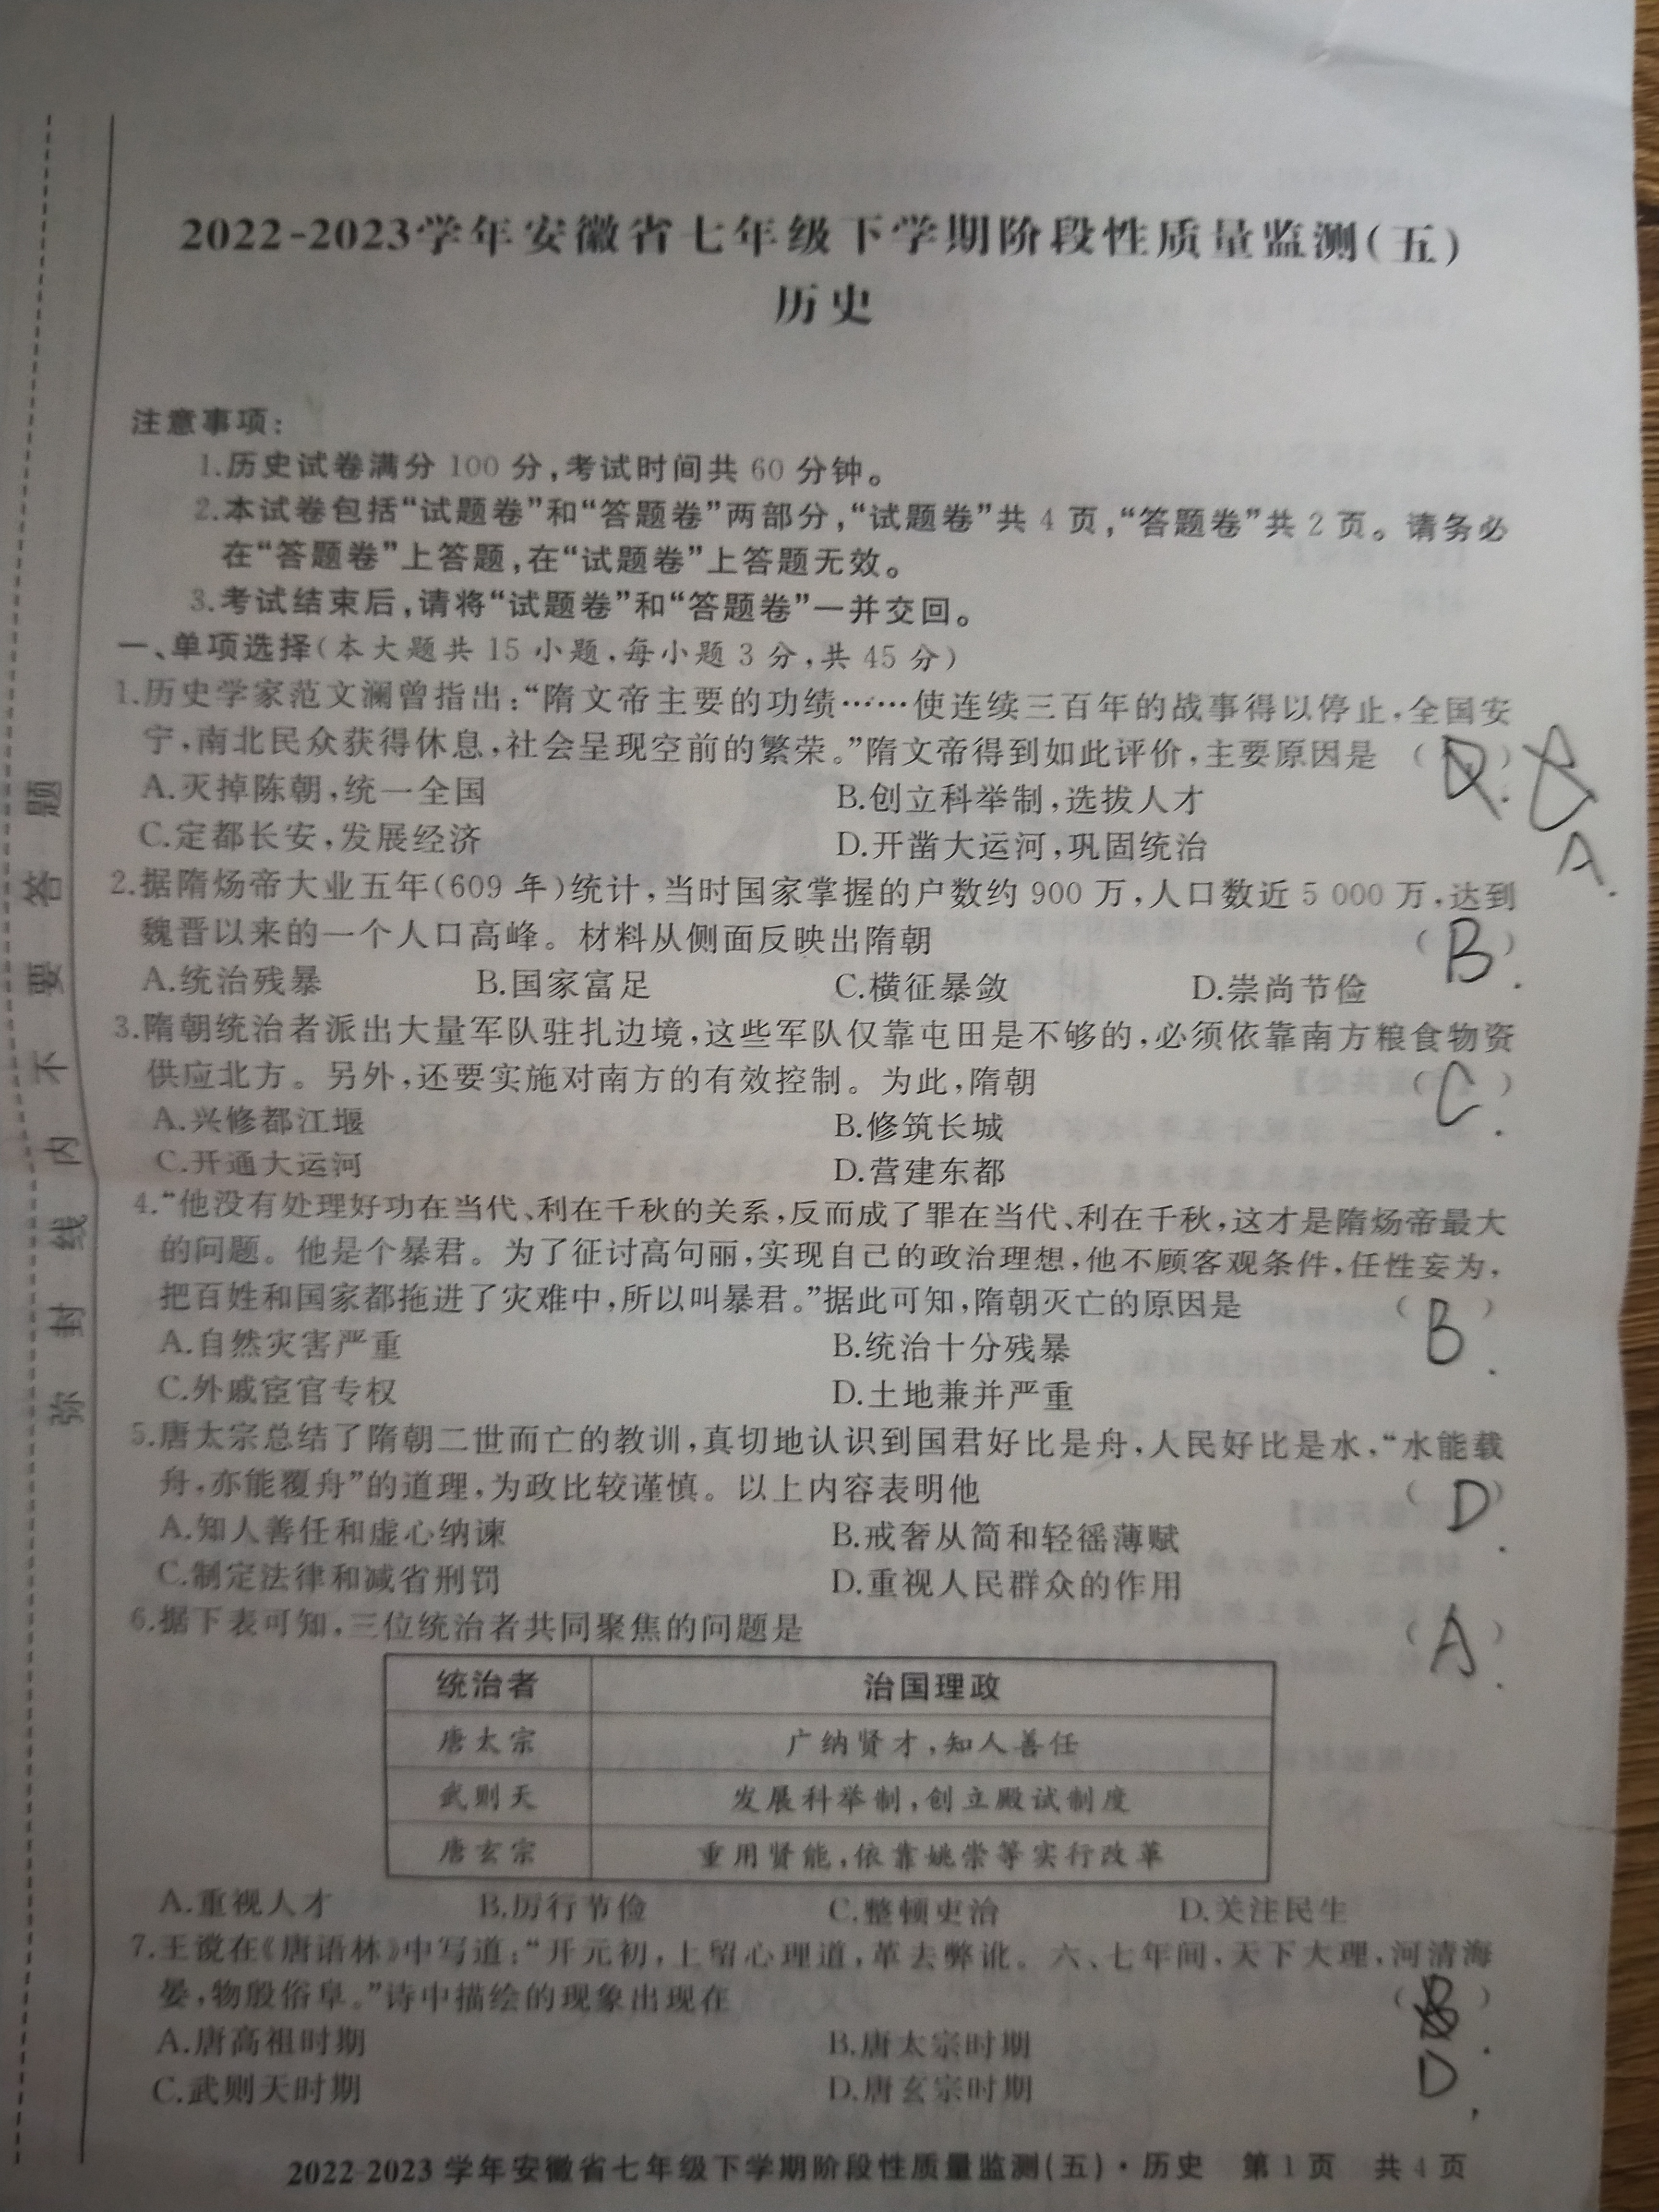 2022-2023学年安徽省七年级下学期阶段性质量监测(五)
历史
注意事项:
1.历史试卷满分 100 分,考试时间共 60 分钟。
2.本试卷包括“试题卷”和“答题卷”两部分,“试题卷”共 4 页,“答题卷”共 2 页。请务必
在“答题卷”上答题,在“试题卷”上答题无效。
3.考试结束后,请将“试题卷”和“答题卷”一并交回。
一、单项选择(本大题共 15 小题,每小题 3 分,共 45 分)
1.历史学家范文澜曾指出:“隋文帝主要的功绩……使连续三百年的战事得以停止,全国安
宁,南北民众获得休息,社会呈现空前的繁荣。”隋文帝得到如此评价,主要原因是 ( )
A.
A.灭掉陈朝,统一全国 B.创立科举制,选拔人才
C.定都长安,发展经济 D.开凿大运河,巩固统治
2.据隋炀帝大业五年(609 年)统计,当时国家掌握的户数约 900 万,人口数近 5 000 万,达到
魏晋以来的一个人口高峰。材料从侧面反映出隋朝 ( B )
A.统治残暴 B.国家富足 C.横征暴敛 D.崇尚节俭
3.隋朝统治者派出大量军队驻扎边境,这些军队仅靠屯田是不够的,必须依靠南方粮食物资
供应北方。另外,还要实施对南方的有效控制。为此,隋朝 ( C )
A.兴修都江堰 B.修筑长城
C.开通大运河 D.营建东都
4.“他没有处理好功在当代、利在千秋的关系,反而成了罪在当代、利在千秋,这才是隋炀帝最大
的问题。他是个暴君。为了征讨高句丽,实现自己的政治理想,他不顾客观条件,任性妄为,
把百姓和国家都拖进了灾难中,所以叫暴君。”据此可知,隋朝灭亡的原因是 ( B )
A.自然灾害严重 B.统治十分残暴
C.外戚宦官专权 D.土地兼并严重
5.唐太宗总结了隋朝二世而亡的教训,真切地认识到国君好比是舟,人民好比是水,“水能载
舟,亦能覆舟”的道理,为政比较谨慎。以上内容表明他 ( D )
A.知人善任和虚心纳谏 B.戒奢从简和轻徭薄赋
C.制定法律和减省刑罚 D.重视人民群众的作用
6.据下表可知,三位统治者共同聚焦的问题是 ( A )
统治者 治国理政
唐太宗 广纳贤才,知人善任
武则天 发展科举制,创立殿试制度
唐玄宗 重用贤能,依靠姚崇等实行改革
A.重视人才 B.厉行节俭 C.整顿吏治 D.关注民生
7.王谠在《唐语林》中写道:“开元初,上留心理道,革去弊讹。六、七年间,天下大理,河清海
晏,物殷俗阜。”诗中描绘的现象出现在 ( )
D
A.唐高祖时期 B.唐太宗时期
C.武则天时期 D.唐玄宗时期
2022-2023 学年安徽省七年级下学期阶段性质量监测(五)·历史 第 1 页 共 4 页
弥 封 线 内 不 要 答 题